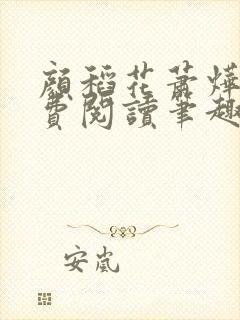 顏稻花蕭燁
費閱讀筆趣
安嵐